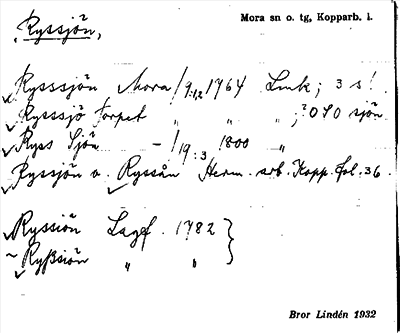 Ryssjön,
Mora sn o. tg, Kopparb. l.
Rysssjön Mora / 9:12 1764 Lmk; 3 s!
Rysssjö torpet " " " ; ? OSO sjön
Ryss Sjön — / 19:3 1800 "
Ryssjön o. Ryssån Herm. arb. Kopp. fol. 36.
Ryssiön Lagf. 1782 }
~ Ryßsiön " "
Bror Lindén 1932